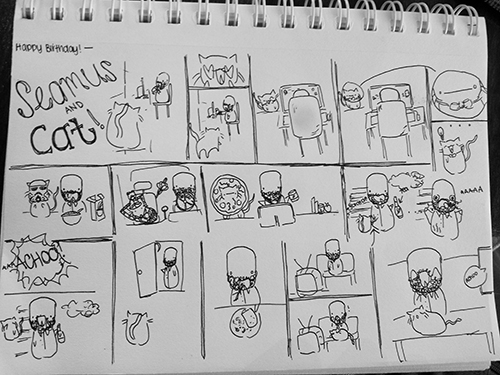 Happy Birthday! —
Seamus
AND
Cat!
AAAAA
ACHOO!